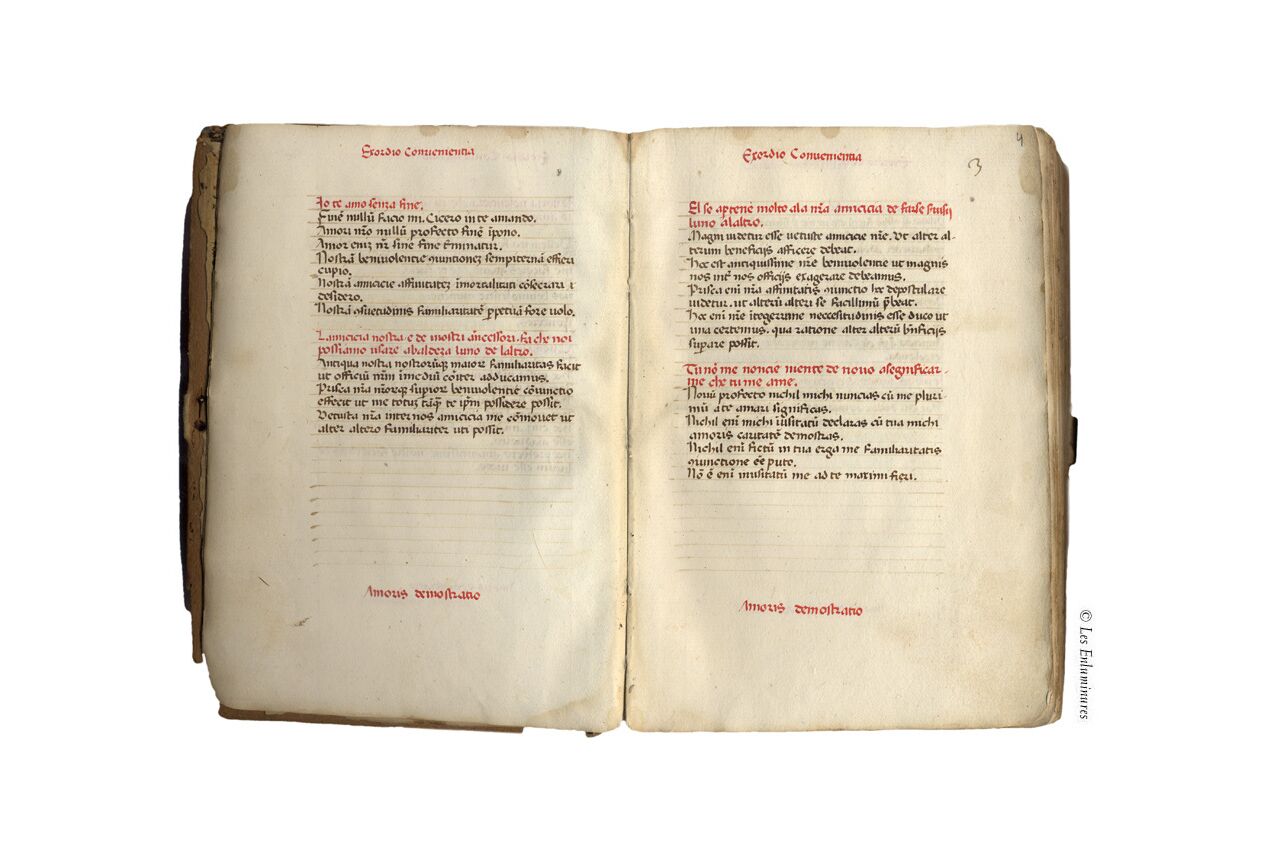 Exordio Conuenientia
Io te amo senza fine.
Finē nullū facio mi. Cicero in te amando.
Amori nr̄o nullū profecto finē īpono.
Amor enim nr̄ sine fine
Nostrā beniuolentie sempiternā effici
cupio.
Nostrā amicicie affinitatē īmortalitati cōsecrari
desidero.
Nostrā familiaritatē ꝑpetuā fore uolo.
Lamicicia nostra e de nostri āncessori. fa che noi
possiamo usare abaldeza luno de laltro.
Antiqua nostra nostrorūqꝫ maior familiaritas facit
ut officiū nr̄m adducamus.
Prisca nr̄a superior beniuolentie cōiunctio
effecit ut me totuꝫ te ip̄m possidere possit.
Vetusta nr̄a inter nos amicicia me cōmouet ut
alter altero familiariter uti possit.
Amoris demostratio
4
3
Exordio Conuenientia
El se aꝑtene molto ala nr̄a amicicia de farse
luno alaltro.
Magni uidetur esse uetuste amicicie nr̄e. Ut alter al-
terum beneficijs afficere debeat.
Hoc est antiquissime nr̄e beniuolentie ut magnis
nos int̄ nos officijs exagerare debeamus.
Prisca eni nr̄a affinitatis hoc depostulare
uidetur. ut alterū alteri se facillimū p̄beat.
Hoc eni nr̄e neccessitudinis esse duco ut
una certemus. qua ratione alter alterū bn̄ficijs
suꝑare possit.
Tu nō me noncie niente de nouo asegnificar-
me che tu me ame.
Nouū profecto nichil michi nuncias cū me pluri
mū a te amari significas.
Nichil eni michi iusitatū declaras cū tua michi
amoris caritatē demostras.
Nichil eni fictū in tua erga me familiaritatis
esse puto.
Nō ē eni inusitatū me ad te maximi fieri.
Amoris demostratio
© Les Enluminures